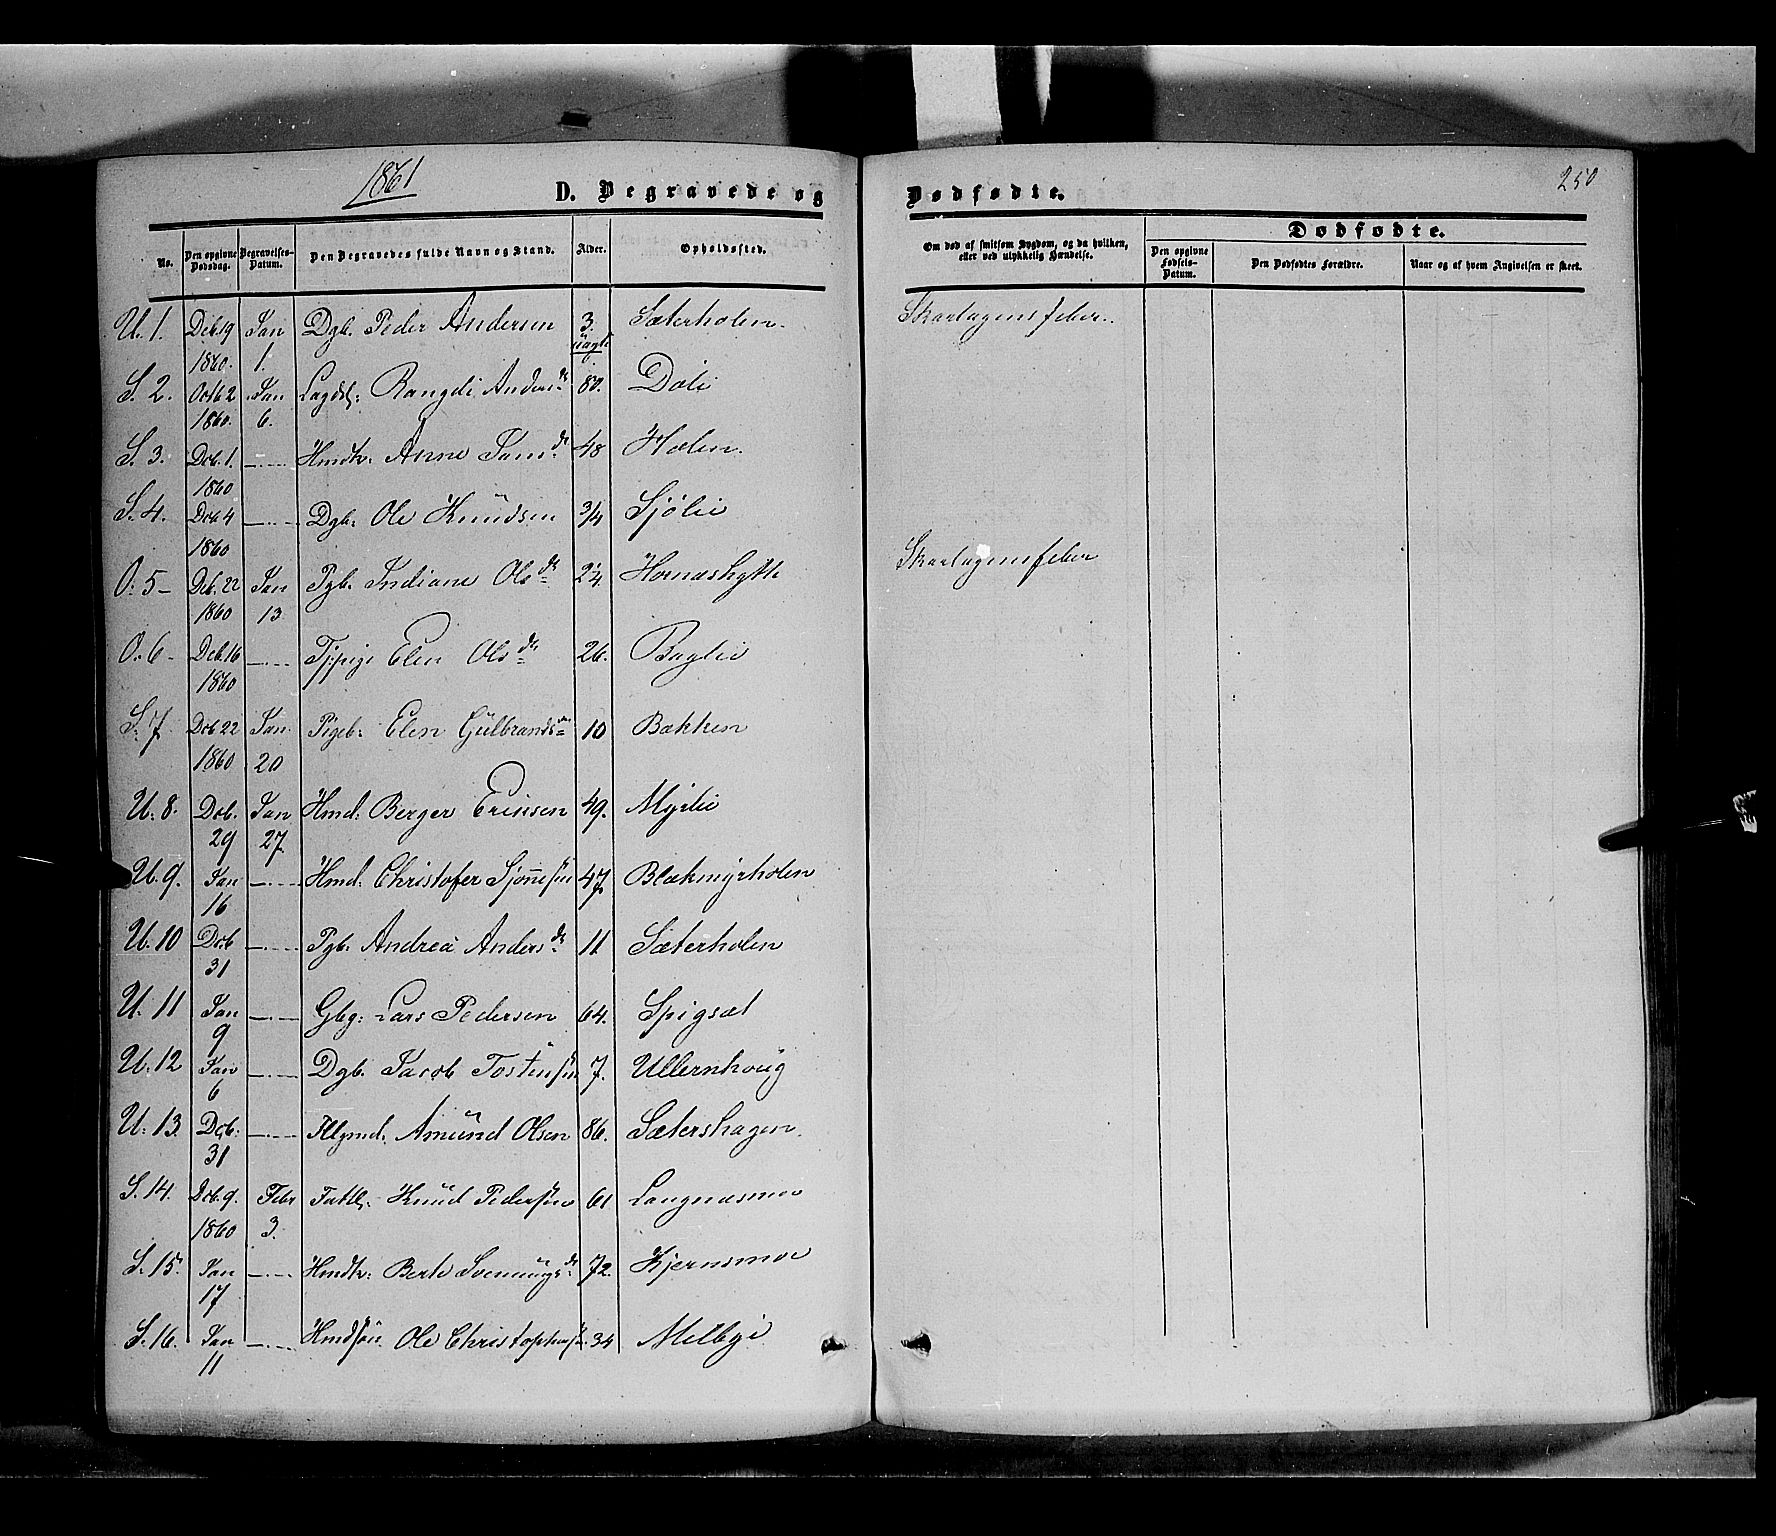 1861
D. Begravede og Dødfødte.
250
No.
Den opgivne Dødsdag.
Begravelses-Datum.
Den Begravedes fulde Navn og Stand.
Alder.
Opholdssted.
Om død af smitsom Sygdom, og da hvilken, eller ved ulykkelig Hændelse.
Dødfødte.
Den opgivne Fødsels-Datum.
Den Dødfødtes Forældre.
Naar og af hvem Angivelsen er skeet.
U. 1. Deb. 19 1860. Jan 1. Dgb. Peder Andersen 3. Sæterholen. Skarlagensfeber.
S. 2. Octb 2 1860. Jan 6. Lægdsl: Rangdi Andersdr 80. Dale
S. 3. Dcb. 1. 1860 —..— Hmdk. Anne Jansdr 48 Holen.
S. 4. Dcb 4 1860 —..— Dgb: Ole Knudsen 3/4 Sjølie
O: 5 — Deb. 22 1860 Jan 13 Pgb. Indiane Olsdr 24. Hornæshytte Skarlagensfeber
O. 6 — Deb. 16 1860 —..— Tjpige Elen Olsdr 26. Baglie
S: 7 Dcb 22 1860 Jan 20 Pigeb: Elen Gulbrandsdr 10 Bakken
U. 8. Dcb. 29 Jan 27 Hmd: Berger Eriksen 49. Myrlie
U. 9. Jan 16 —..— Hmd: Christofer Sjønnesen 47. Blækmyrholen
U. 10 Dcb 31 —..— Pgb. Andrea Andersdr 11. Sæterholen
U. 11 Jan 9 —..— Gbg: Lars Pedersen 64. Spigsæt
U. 12 Jan 6 —..— Dgb. Jacob Tostensen 7. Ullernhoug
U. 13. Dcb. 31 —..— Amund Olsen 86. Sætershagen.
S. 14. Dcb. 9. 1860 Febr 3. Fattl: Knud Pedersen 61 Langnæsmoe
S. 15. Jan 17 —..— Hmdk: Berte Svenningsdr 72. Kjernsmoe
S. 16. Jan 11 —..— Hmdsøn Ole Christophersen 34 Melbye